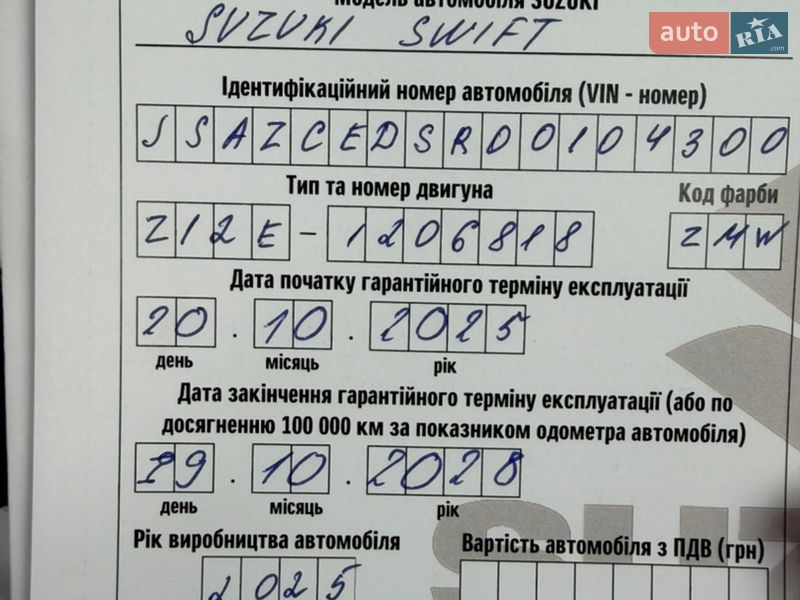 Модель автомобіля SUZUKI
auto RIA .com
SUZUKI SWIFT
Ідентифікаційний номер автомобіля (VIN - номер)
JSAZCEDSR00104300
Тип та номер двигуна
Код фарби
Z12E – 1206818
ZMW
Дата початку гарантійного терміну експлуатації
20 . 10 . 2025
день місяць рік
Дата закінчення гарантійного терміну експлуатації (або по
досягненню 100 000 км за показником одометра автомобіля)
19 . 10 . 2028
день місяць рік
Рік виробництва автомобіля
Вартість автомобіля з ПДВ (грн)
2025